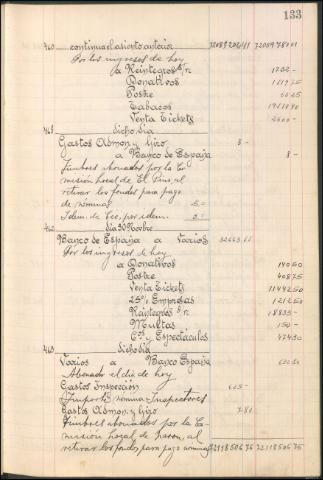 133
460 continua el asiento anterior 72089202,11 72089780,01
Por los ingresos de hoy
a Reintegros s/r 1702 -
Donativos
Postre 6025
Tabacos
Venta Tickets 2600 -
461 dicho dia
Gastos Admon. y Giro 8 -
a Banco de España 8 -
Timbres abonados por la Co-
misión Local de El Pino, al
retirar los fondos para pago
de nominas
Idem. de por idem.
462 dia 30 Novbre.
Banco de España a Varios
Por los ingresos de hoy
a Donativos 14050
Postre 40875
Venta Tickets 1144250
25% Empresas 121250
Reintegros s/r 18835 -
Multas 150 -
Cos y Espectáculos 47450
463 dicho dia
Varios a Banco España
Abonado el dia de hoy
Gastos Inspección
Importe nomina Inspectores
Gastos Admon. y Giro 7.80
Timbres abonados por la Co-
misión Local de al
retirar los fondos para pago nominas 72118506 75 72118506 75